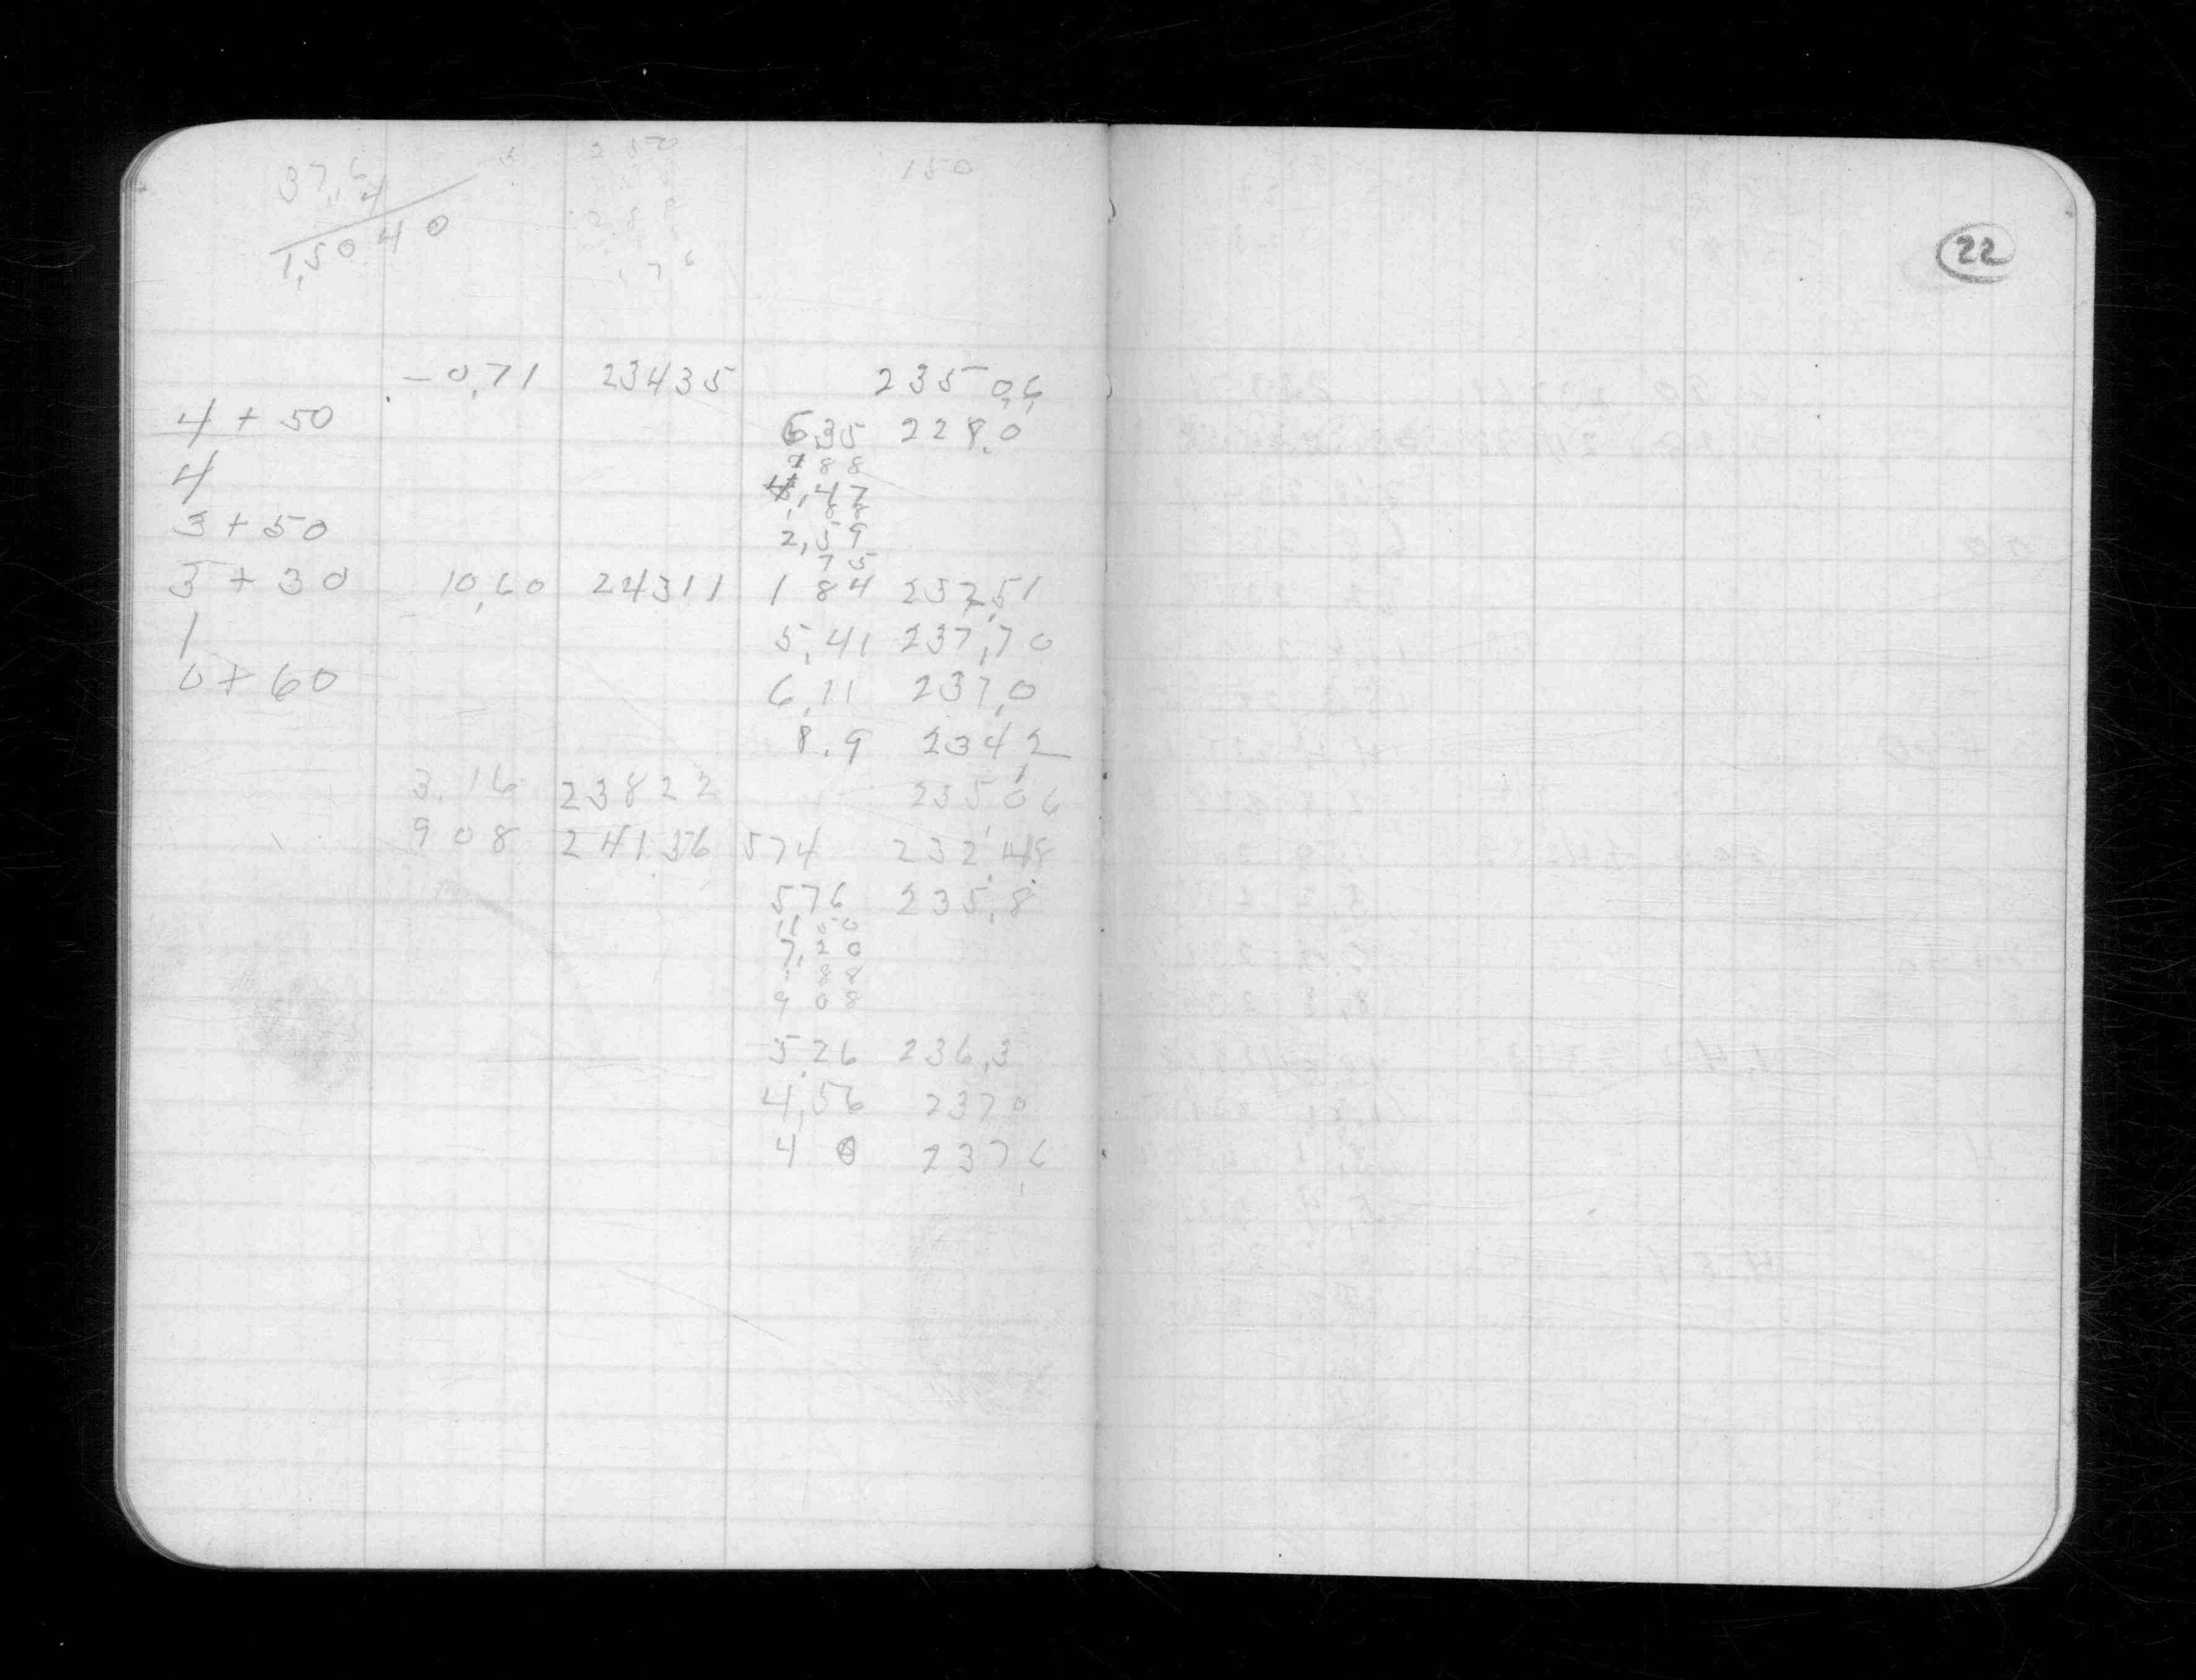 37,6
4
1,5040
250
176
150
22
-0,71 23435 2350,6
4 + 50 635 228,0
4 988
4,47
188
3 + 50 2,59
75
3 + 30 10,60 24311 1 84 232,51
1 5,41 237,70
0 + 60 6,11 237,0
8.9 2342
3.16 23822 23506
908 24136 574 232,48
5,76 235,8
11 50
7,20
1 88
9 08
5,26 236,3
4,56 2370
4 0 2376